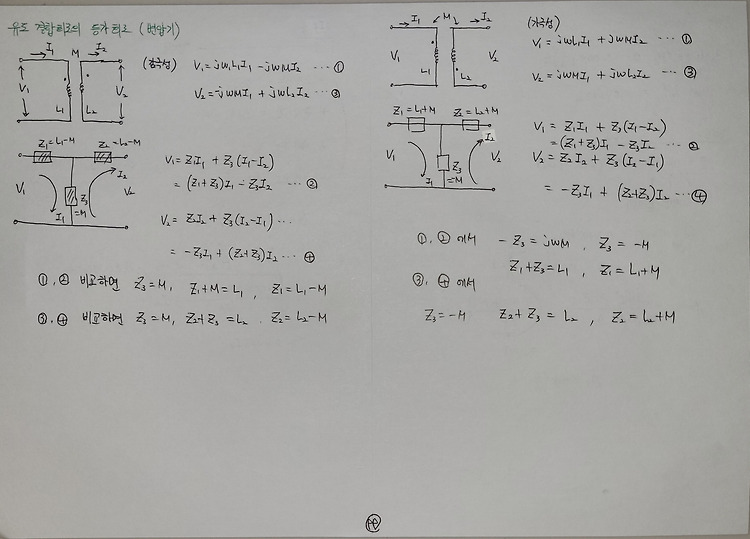 유도 결합회로의 등가회로 (변압기)
I₁ M I₂
V₁ L₁ L₂ V₂
(감극성) V₁ = jωL₁I₁ - jωMI₂ ... ①
V₂ = -jωMI₁ + jωL₂I₂ ... ③
Z₁=L₁-M Z₂=L₂-M
V₁ I₁ Z₃ =M I₂ V₂
V₁ = Z₁I₁ + Z₃(I₁-I₂)
= (Z₁+Z₃)I₁ - Z₃I₂ ... ②
V₂ = Z₂I₂ + Z₃(I₂-I₁) ...
= -Z₃I₁ + (Z₂+Z₃)I₂ ... ④
①, ② 비교하면 Z₃=M, Z₁+M=L₁, Z₁=L₁-M
③, ④ 비교하면 Z₃=M, Z₂+Z₃=L₂. Z₂=L₂-M
I₁ M I₂
V₁ L₁ L₂ V₂
(가극성)
V₁ = jωL₁I₁ + jωMI₂ ... ①
V₂ = jωMI₁ + jωL₂I₂ ... ③
Z₁=L₁+M Z₂=L₂+M
V₁ I₁ Z₃ =M I₂ V₂
V₁ = Z₁I₁ + Z₃(I₁-I₂)
= (Z₁+Z₃)I₁ - Z₃I₂ ... ②
V₂ = Z₂I₂ + Z₃(I₂-I₁)
= -Z₃I₁ + (Z₂+Z₃)I₂ ... ④
①, ② 에서 -Z₃ = jωM, Z₃ = -M
Z₁+Z₃ = L₁, Z₁ = L₁+M
③, ④ 에서
Z₃ = -M Z₂+Z₃ = L₂, Z₂ = L₂+M